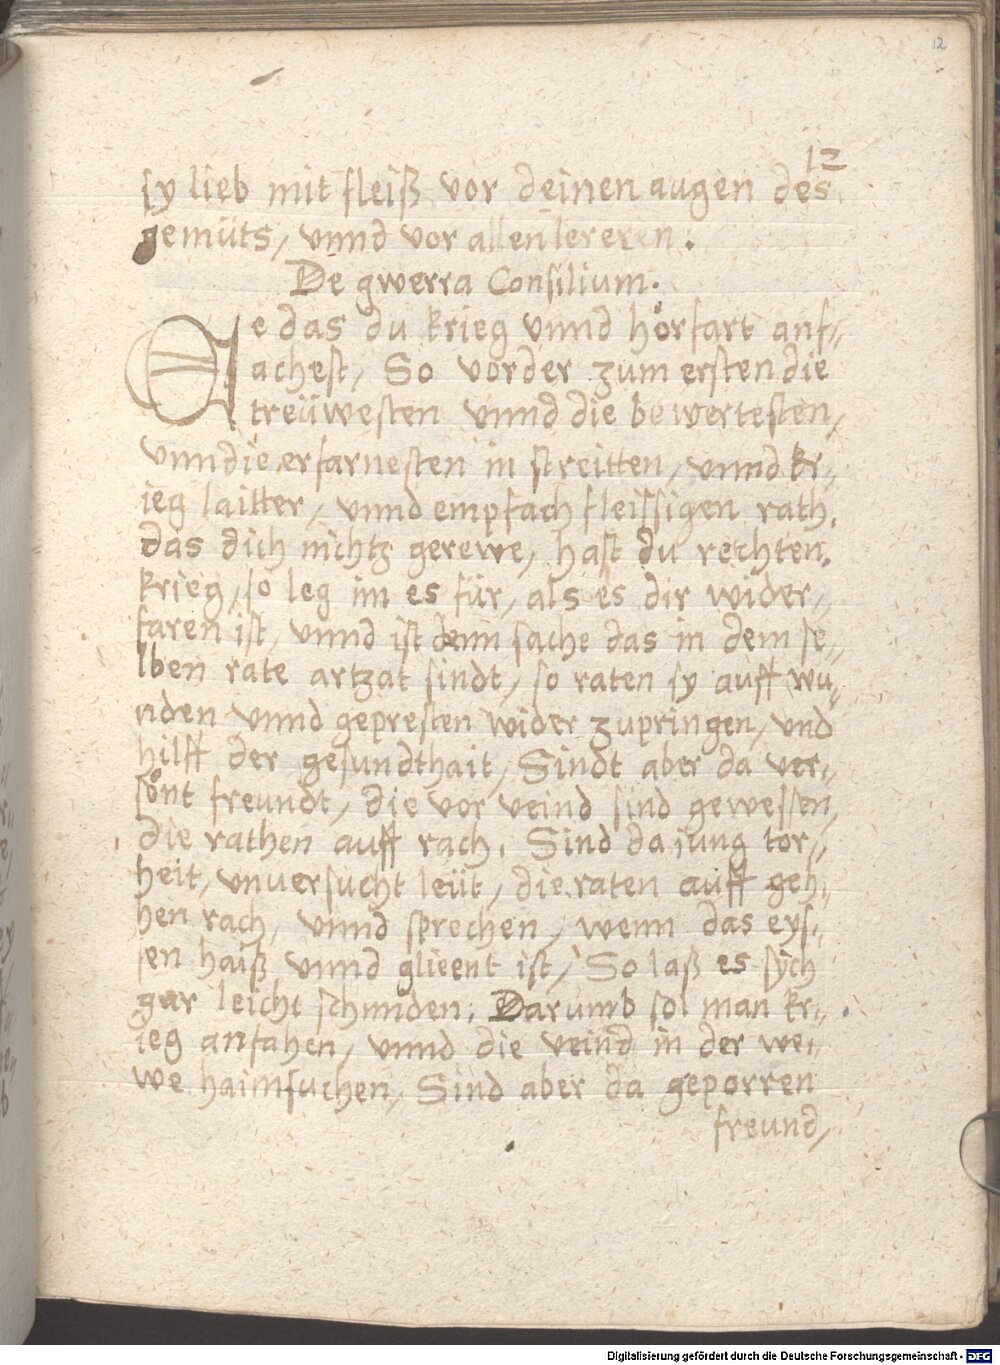 12
12
sy lieb mit fleiß vor deinen augen des
gemüts, vnnd vor allen lereren.
De gwerra Consilium.
Ee das du krieg vnnd hörfart anf„
achest, So vorder zum ersten die
treüwesten vnnd die bewertesten,
vnn die erfarnesten in streitten, vnnd kr„
ieg laitter, vnnd empfach fleissigen rath,
das dich nichtz gerewe, hast du rechten
krieg, so leg im es für, als es dir wider„
faren ist, vnnd ist denn sache das in dem se„
lben rate artzat sindt, so raten sy auff wu„
nden vnnd gepresten wider zupringen, vnd
hilff der gesundthait, Sindt aber da ver„
sönt freundt, die vor veind sind gewessen,
die rathen auff rach. Sind da jung tor„
heit, vnuersucht leüt, die raten auff geh„
hen rach, vnnd sprechen, wenn das eys„
sen haiß vnnd glieent ist, So laß es sych
gar leicht schmiden; Darumb sol man kr„
ieg anfahen, vnnd die veind in der we„
we haimsuchen, Sind aber da geporren
freund,
Digitalisierung gefördert durch die Deutsche Forschungsgemeinschaft - DFG